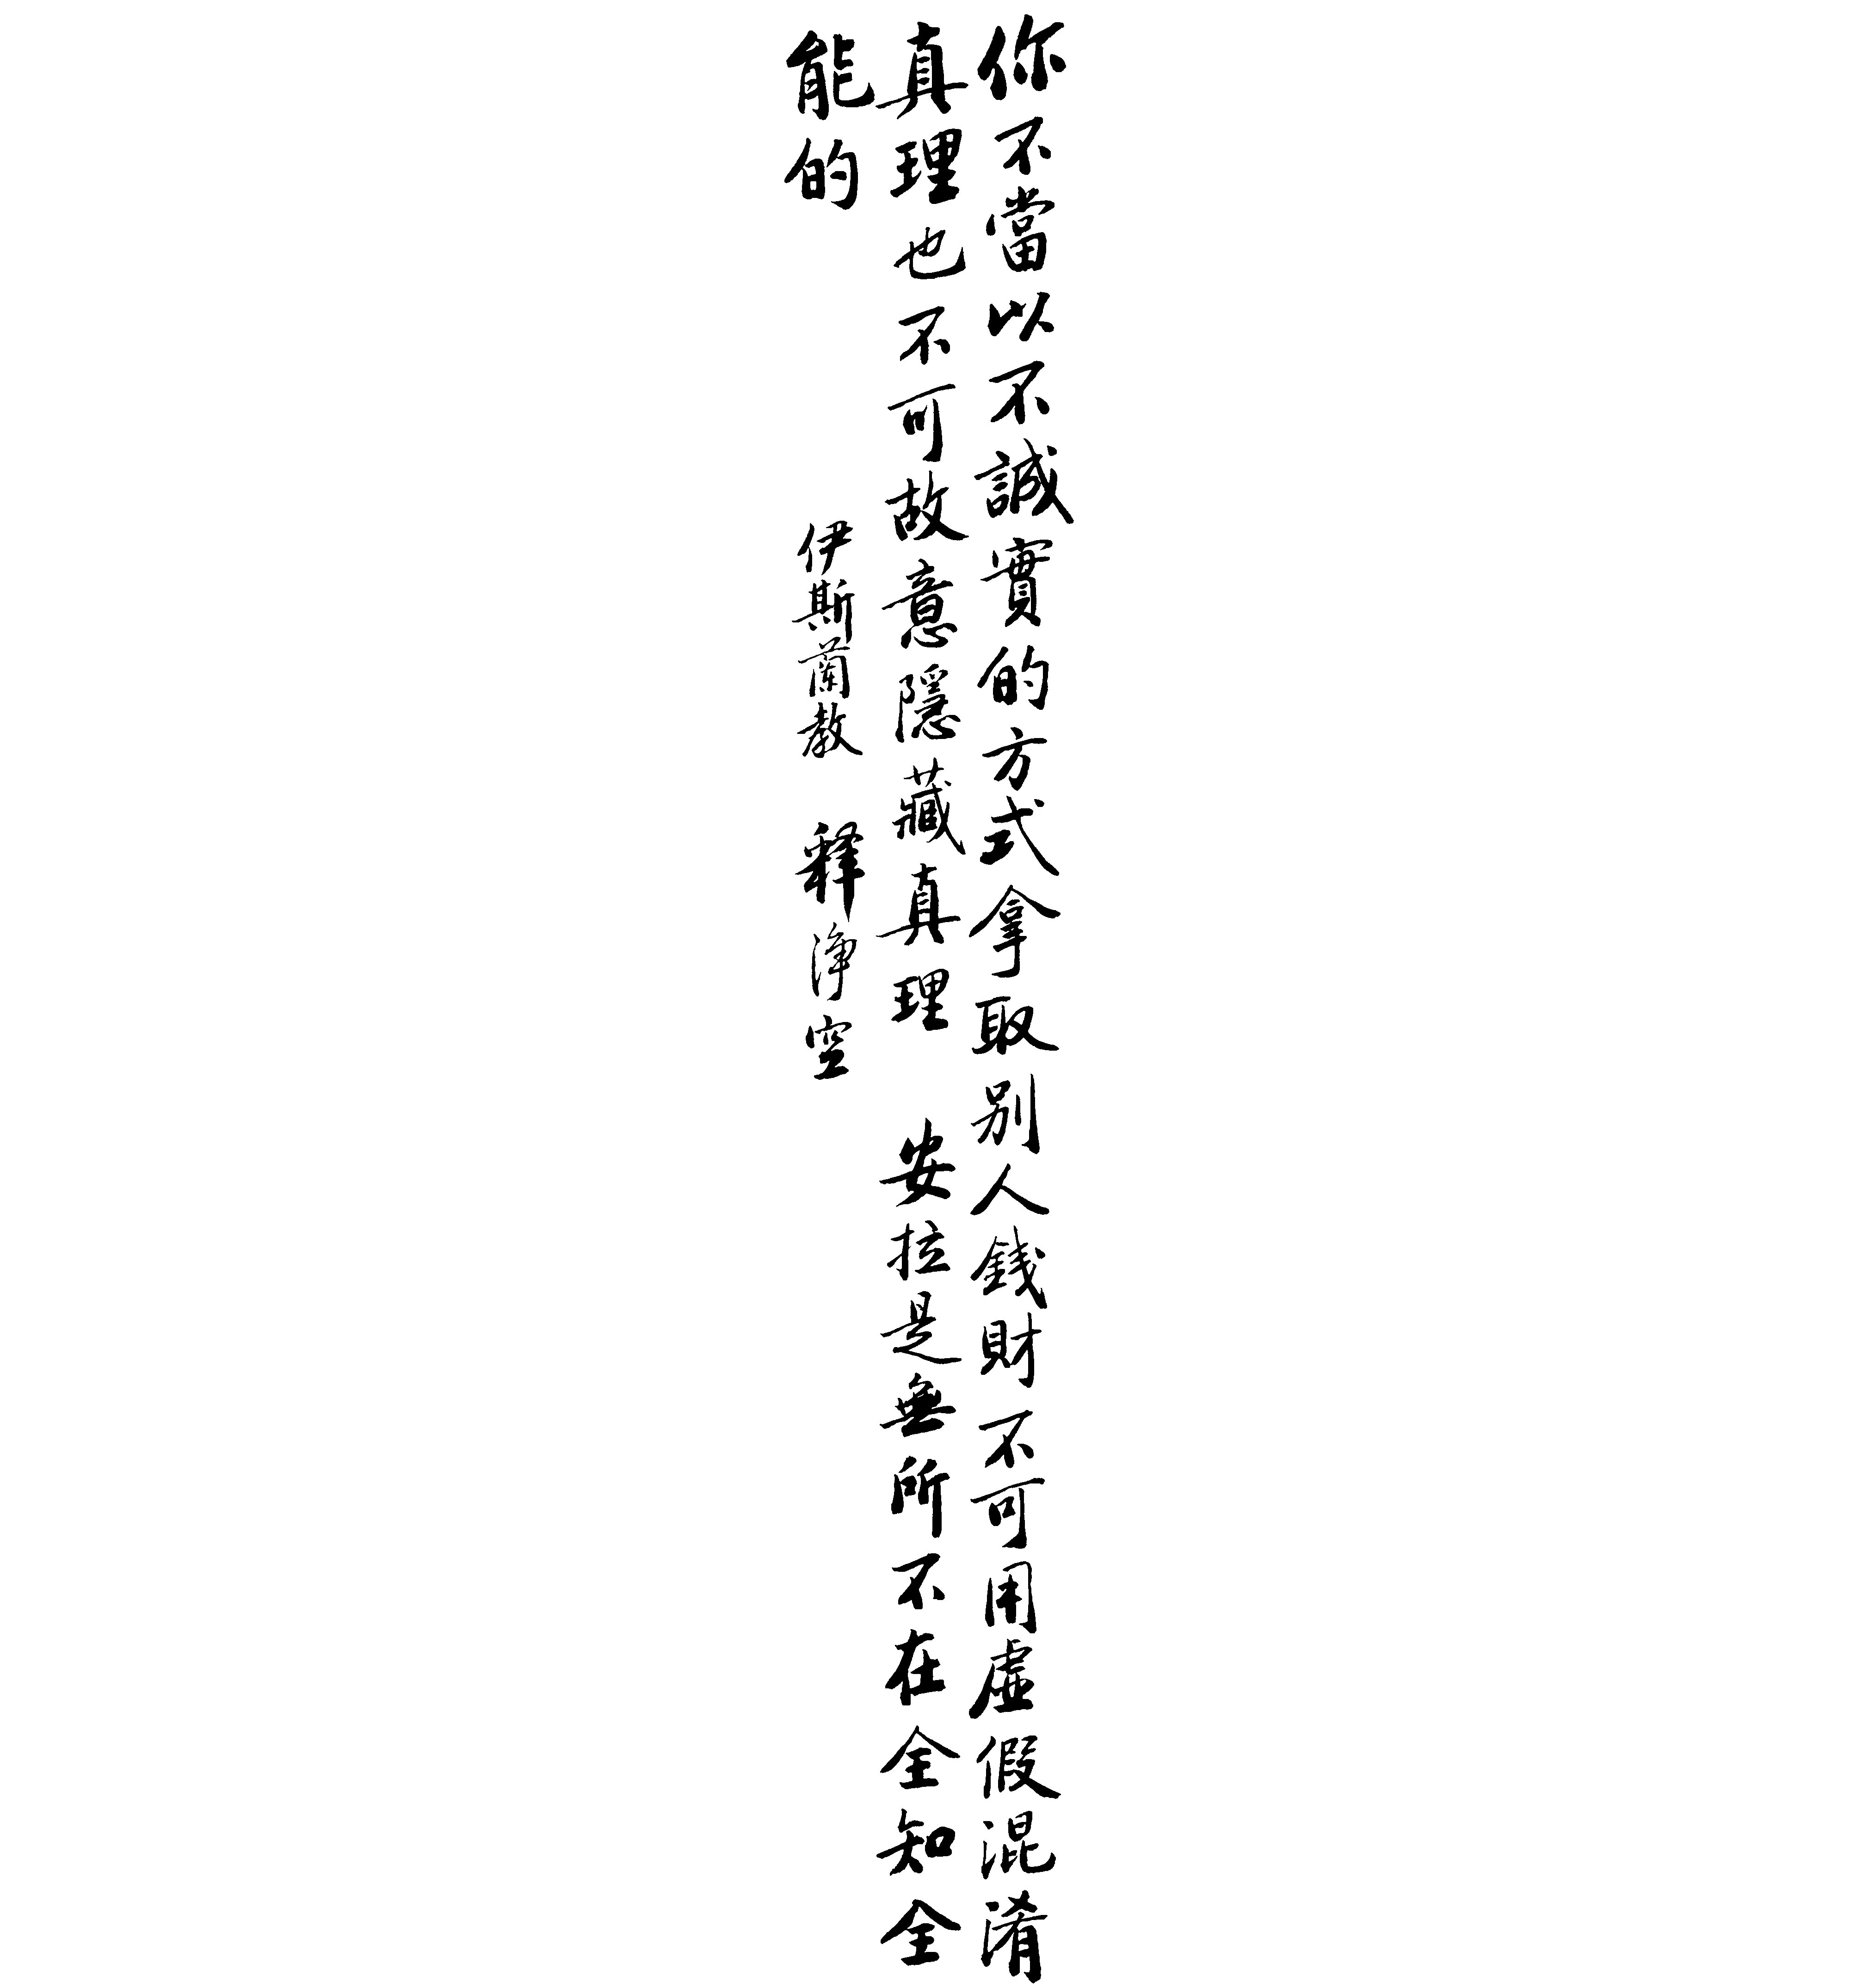 你不當以不誠實的方式拿取别人錢財不可用虛假混淆
真理也不可故意隱藏真理 安拉是無所不在全知全
能的
伊斯蘭教 釋淨空